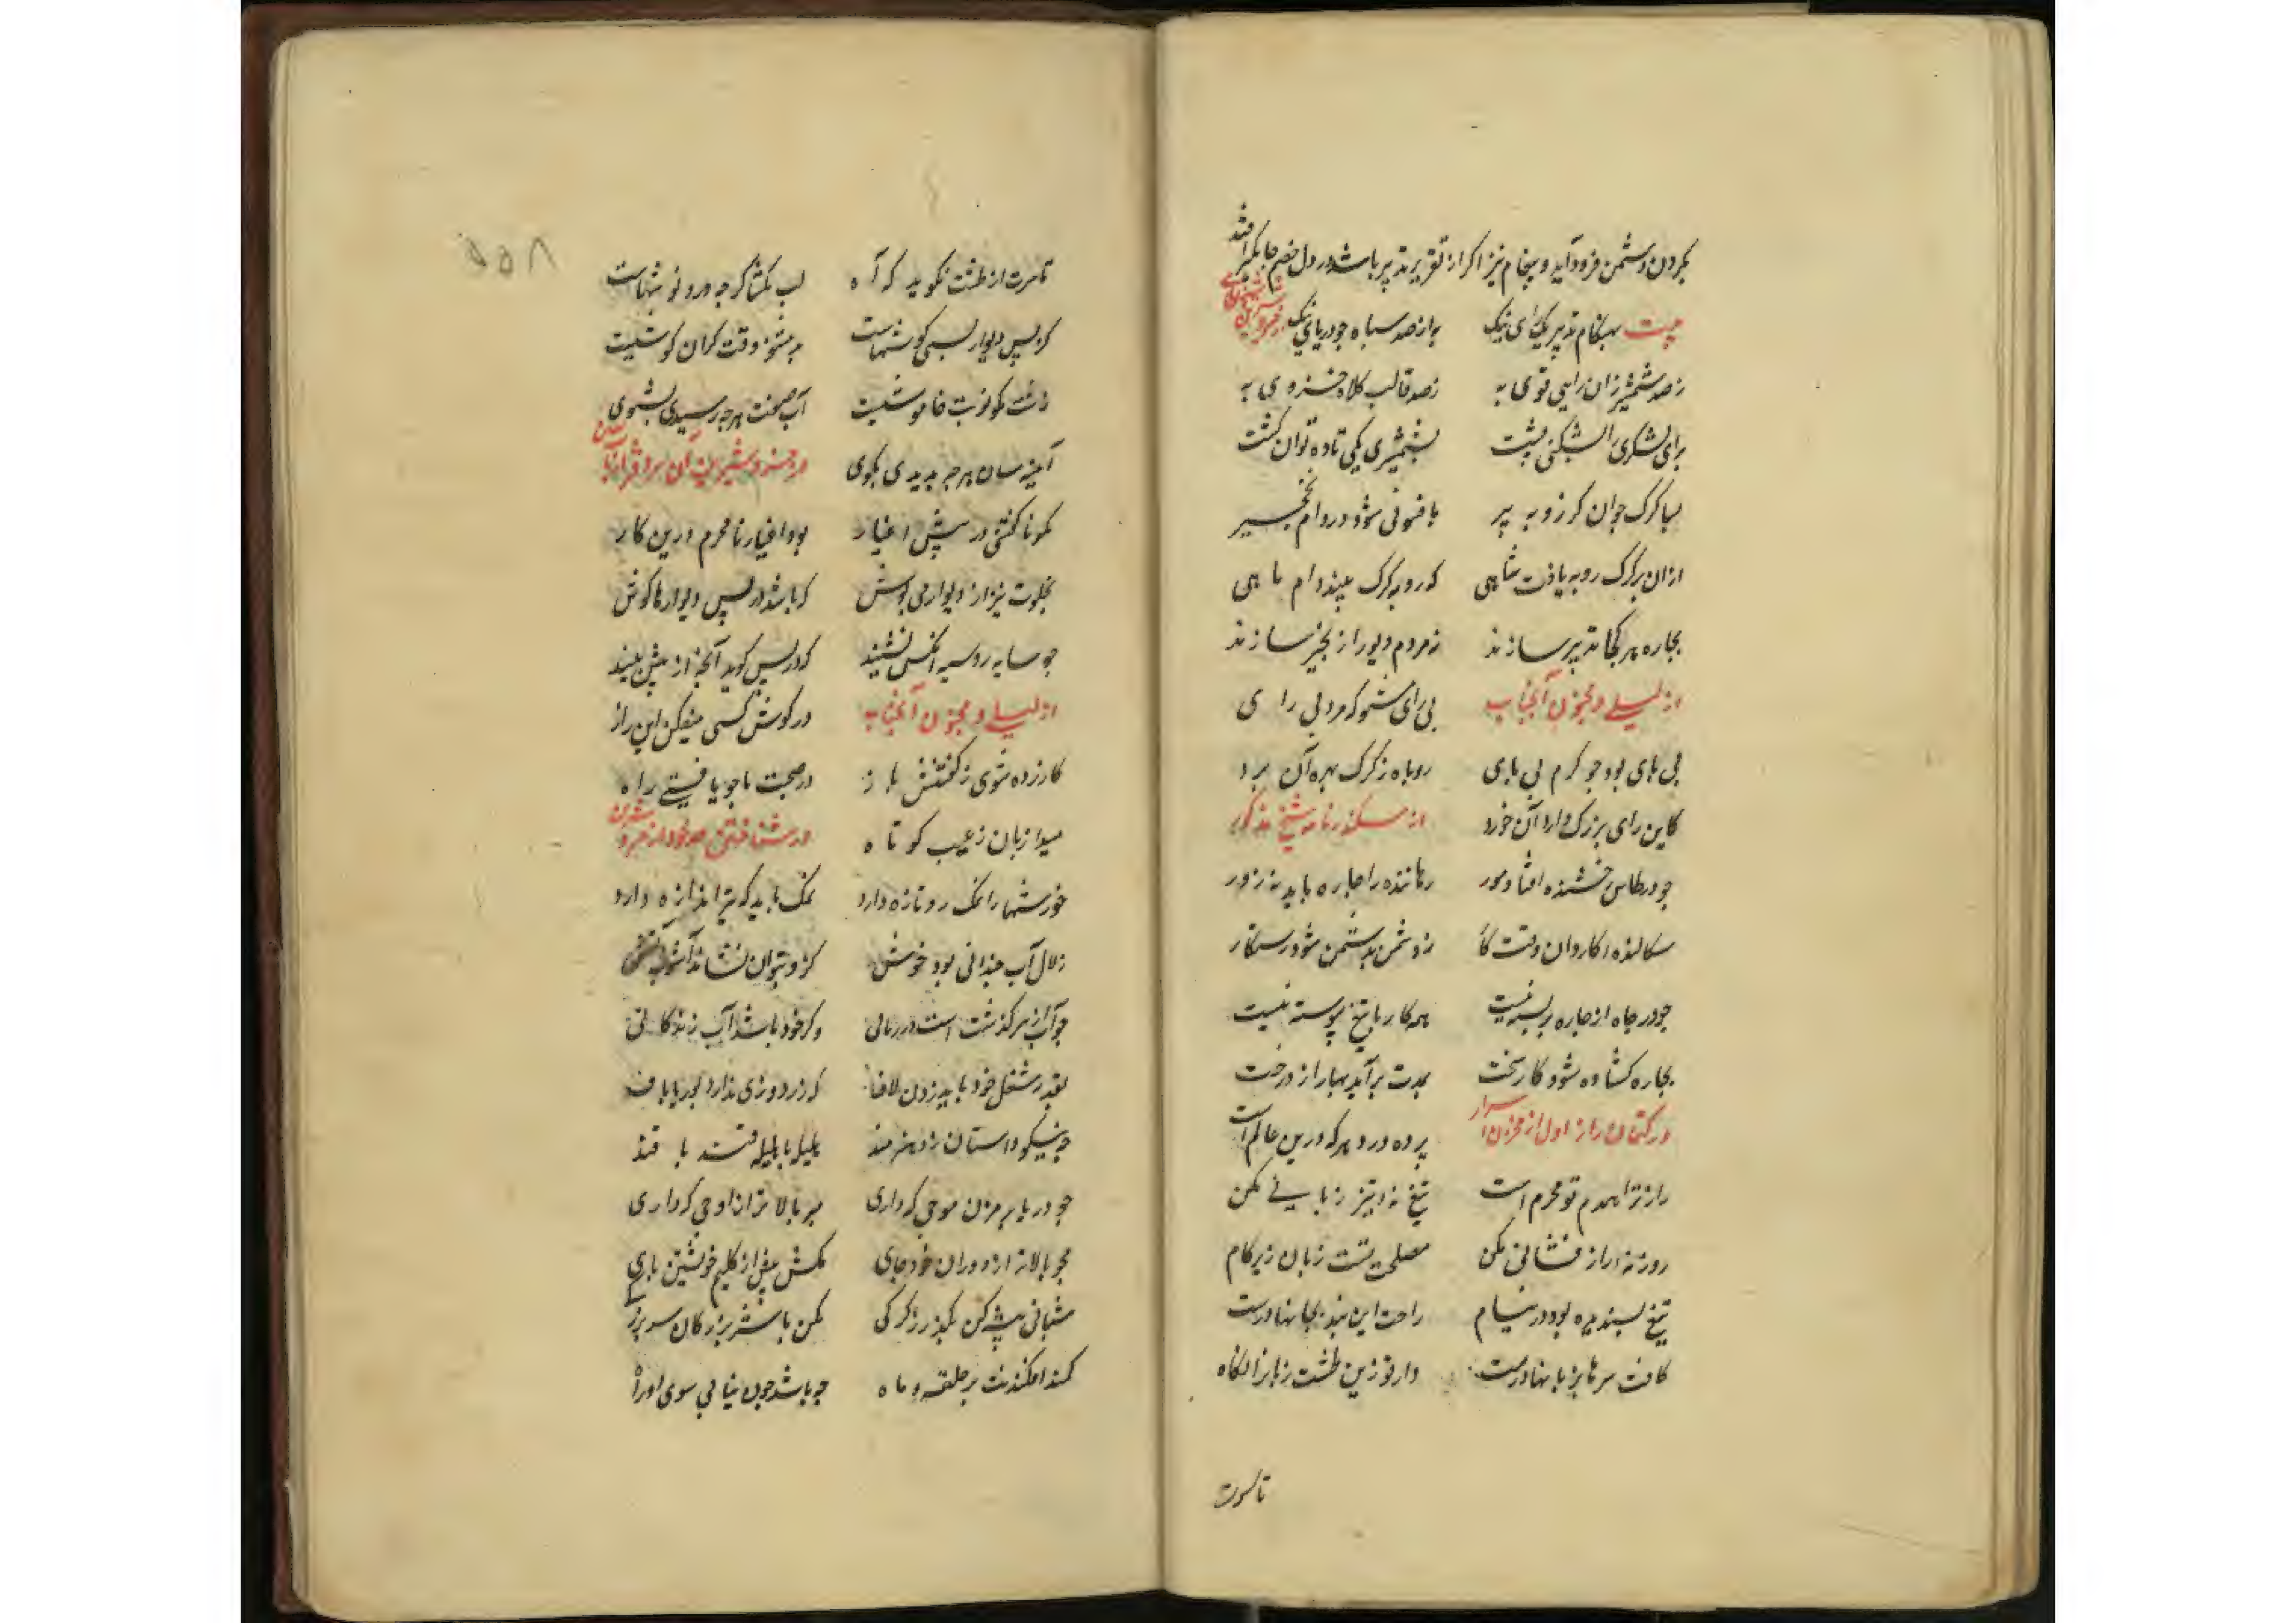 بکردن دشمن فرود آید و پیغام نیز اکر از تقریر تدبیر باشد در دل خصم جایکیر افتد
بیت بهنکام تدبیر یک رای نیک به از صد سپاه چو دریای ریک از خسرو شیرین
ز صد شمشیر زن رایی قوی به ز صد قالب کلاه خسروی به
برای لشکری را بشکنی پشت بشمشیری یکی تا ده توان کشت
بسا کرک جوان کز روبه پیر بافسونی شود در دام نخجیر
ازان بر کرک روبه یافت شاهی که روبه کرک بیند دام ماهی
بچاره هر کجا تدبیر سازند ز مردم دیو را نخجیر سازند
از لیلی و مجنون آنجناب بی رای مشو که مرد بی رای
بی پای بود چو کرم بی پای روباه ز کرک بهره آن برد
کاین رای بزرک دارد آن خورد از سکندرنامه شیخ مذکور
چو در طاس رخشنده افتاد مور رهاننده را چاره باید نه زور
سکالنده کاردان وقت کار ز دشمن بدشمن شود رستکار
چو در چاه از چاره بر بسته نیست همه کار با تیغ پیوسته نیست
بچاره کشاده شود کار سخت بمدت برآید بهار از درخت
در کتمان راز اول از مخزن اسرار پرده درد هر که درین عالم است
راز ترا همدم تو محرم است تیغ نه تیز زبانی مکن
روز نه راز فشانی مکن مصلحت تست زبان زیر کام
تیغ پسندیده بود در نیام راحت این پند بجانها درست
کافت سرها بزبانها درست دار تو زین طشت زبان را نکاه
تا سرت
تا سرت از طشت نکوید که آه لب بکشا کرچه درو نوشهاست
کز پس دیوار بسی کوشهاست بد مشنو وقت کران کوشیست
زشت مکو نوبت خاموشیست آب صفت هر چه رسیدی بشوی
آینه سان هر چه بدیدی مکوی در خسرو شیرین
مکو ناکفتنی در پیش اغیار بود اغیار نامحرم درین کار
بخلوت نیز از دیوار می پوش که باشد در پس دیوارها کوش
چو سایه رو سیه آنکس نشیند که در پس کوید آنچه از پیش بیند
از لیلی و مجنون آنجناب در کوش کسی میفکن این راز
کازرده شوی ز کفتنش باز در صحبت ما چو یافتی راه
میدار زبان ز عیب کوتاه در شناختن حد خود از خسرو شیرین
خورشها را نمک رو تازه دارد نمک باید که نیز اندازه دارد
زلال آب چندانی بود خوش کزو بتوان نشاند آشوب آتش
چو آب از سر کذشت است در زیانی و کر خود باشد آب زندکانی
بقدر شغل خود باید زدن لاف که زردوزی نداند بوریاباف
چه نیکو داستان زد هنرمند هلیله با هلیله قند با قند
چو دریا بر مزن موجی که داری میر بالاتر از اوجی که داری
مجو بالاتر از دوران خود جای مکش بیش از کلیم خویشتن پای
شبانی پیشه کن بکذر ز کرکی مکن با سر بزرکان سر بزرکی
کمند افکندنت بر حلقه ماه چه باشد چون نیابی سوی او راه